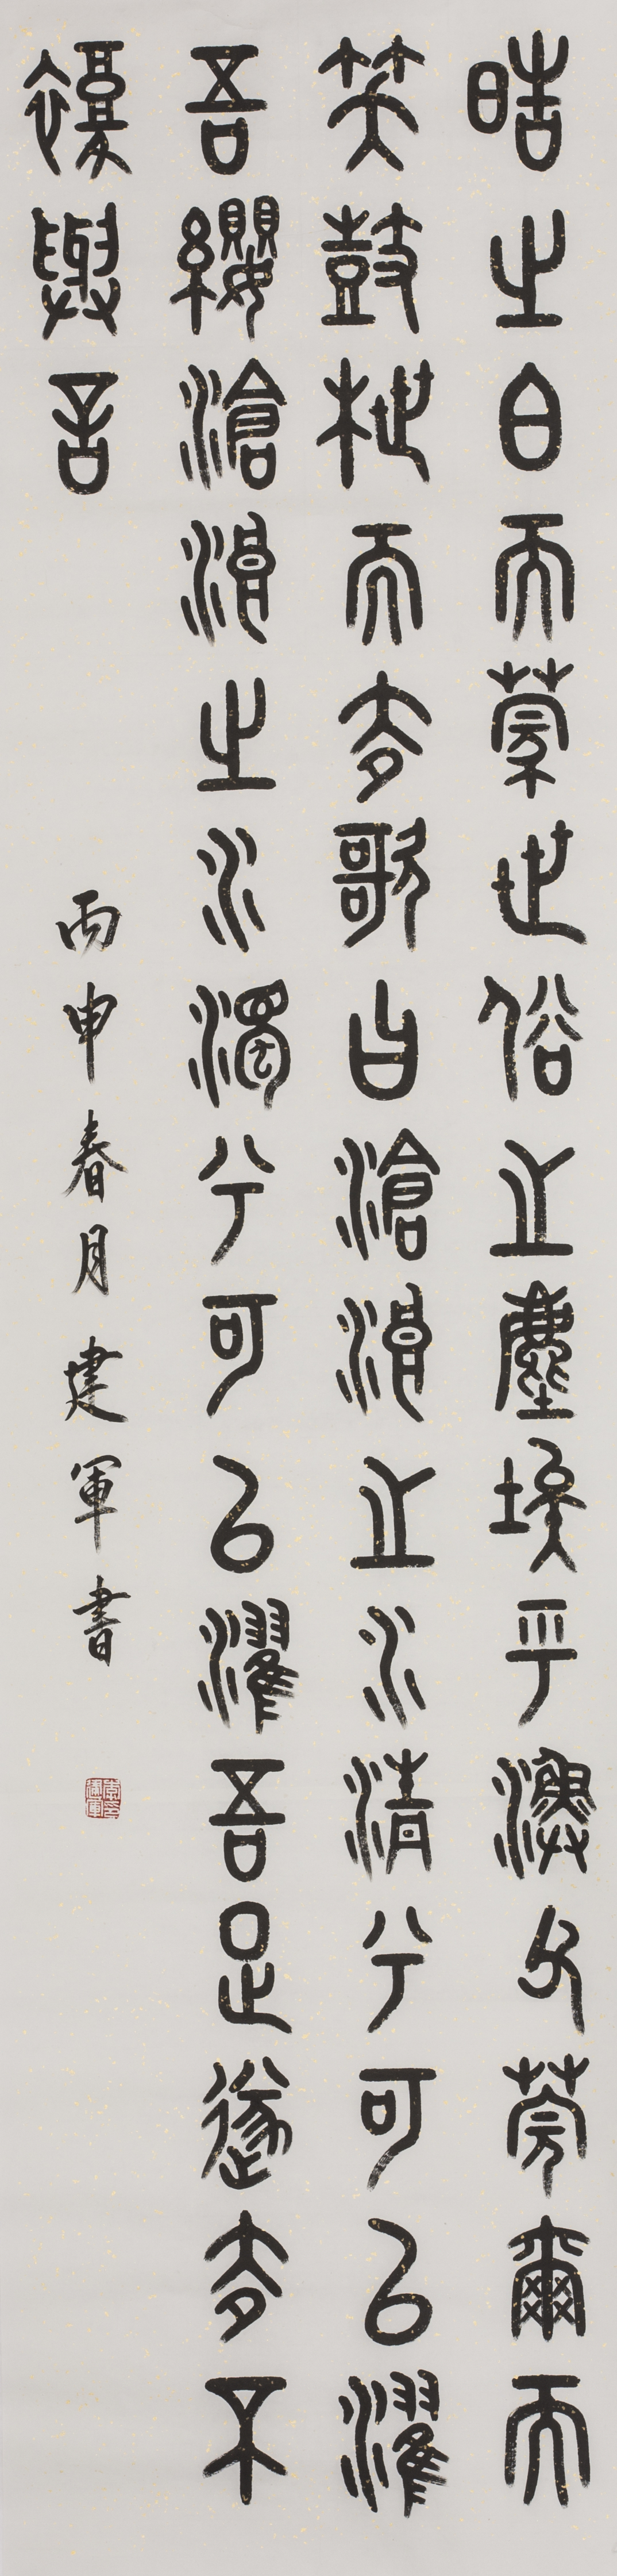 晧之白而蒙世俗之塵埃乎漁父莞爾而
笑鼓枻而去歌曰滄浪之水清兮可以濯
吾纓滄浪之水濁兮可以濯吾足遂去不
復與言
丙申春月建軍書